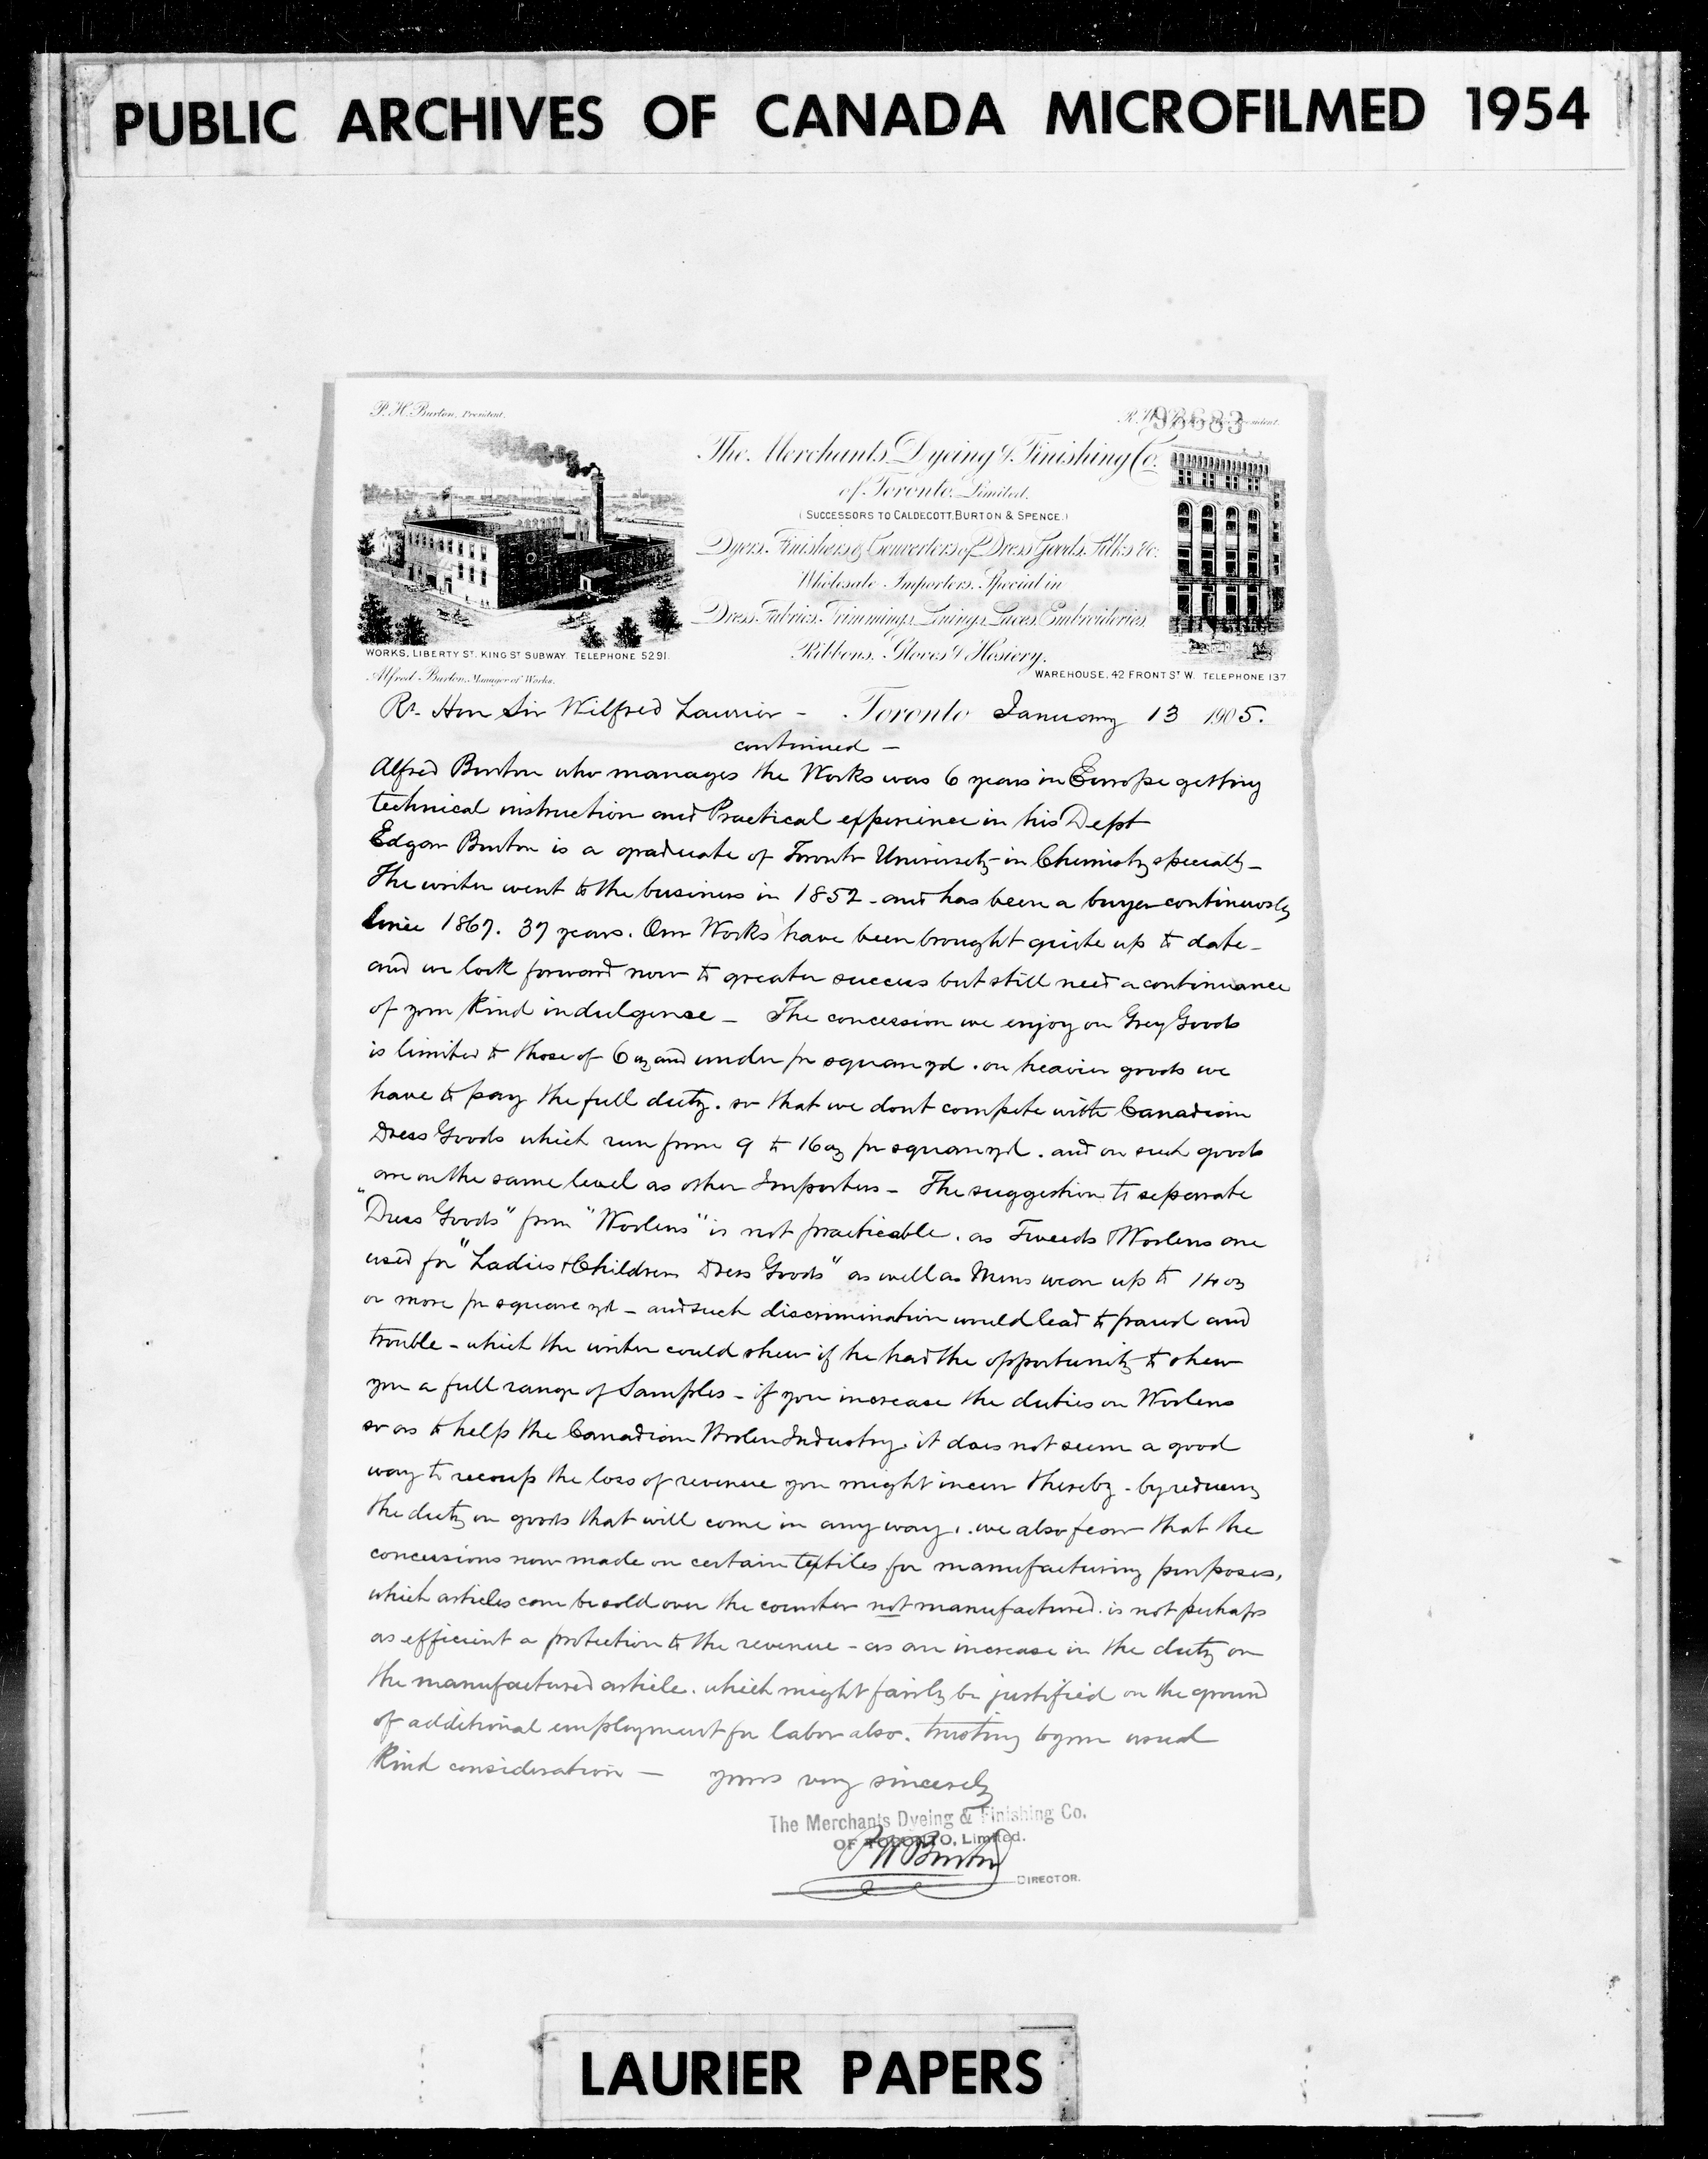 PUBLIC ARCHIVES OF CANADA MICROFILMED 1954
P. H. Burton, President.
98683
The Merchants Dyeing & Finishing Co.
of Toronto, Limited.
(SUCCESSORS TO CALDECOTT, BURTON & SPENCE.)
Dyers, Finishers & Converters of Dress Goods, Silks &c.
Wholesale Importers, Special in
Dress Fabrics, Trimmings, Linings, Laces, Embroideries,
Ribbons, Gloves & Hosiery.
WORKS, LIBERTY ST. KING ST SUBWAY. TELEPHONE 5291.
Alfred Burton, Manager of Works.
WAREHOUSE, 42 FRONT ST W. TELEPHONE 137
Rt. Hon Sir Wilfred Laurier – Toronto January 13 1905.
continued –
Alfred Burton who manages the Works was 6 years in Europe getting
technical instruction and Practical experience in his Dept
Edgar Burton is a graduate of Toronto University in Chemistry specially –
The writer went to the business in 1852 – and has been a buyer continuously
since 1867. 37 years. Our Works have been brought quite up to date –
and we look forward now to greater success but still need a continuance
of your kind indulgence – The concession we enjoy on Grey Goods
is limited to those of 6 oz and under pr square yd. on heavier goods we
have to pay the full duty. so that we dont compete with Canadian
Dress Goods which run from 9 to 16 oz pr square yd. and on such goods
are on the same level as other Importers – The suggestion to separate
"Dress Goods" from "Woolens" is not practicable. as Tweeds & Woolens are
used for "Ladies & Childrens Dress Goods" as well as Mens wear up to 14 oz
or more pr square yd – and such discrimination would lead to fraud and
trouble – which the writer could shew if he had the opportunity to shew
you a full range of Samples – if you increase the duties on Woolens
so as to help the Canadian Woolen Industry. it does not seem a good
way to recoup the loss of revenue you might incur thereby – by reducing
the duty on goods that will come in any way. we also fear that the
concessions now made on certain textiles for manufacturing purposes,
which articles can be sold over the counter not manufactured. is not perhaps
as efficient a protection to the revenue – as an increase in the duty on
the manufactured article. which might fairly be justified on the ground
of additional employment for labor also. trusting to your usual
kind consideration – yours very sincerely
The Merchants Dyeing & Finishing Co.
OF TORONTO, Limited.
P H Burton
DIRECTOR.
LAURIER PAPERS